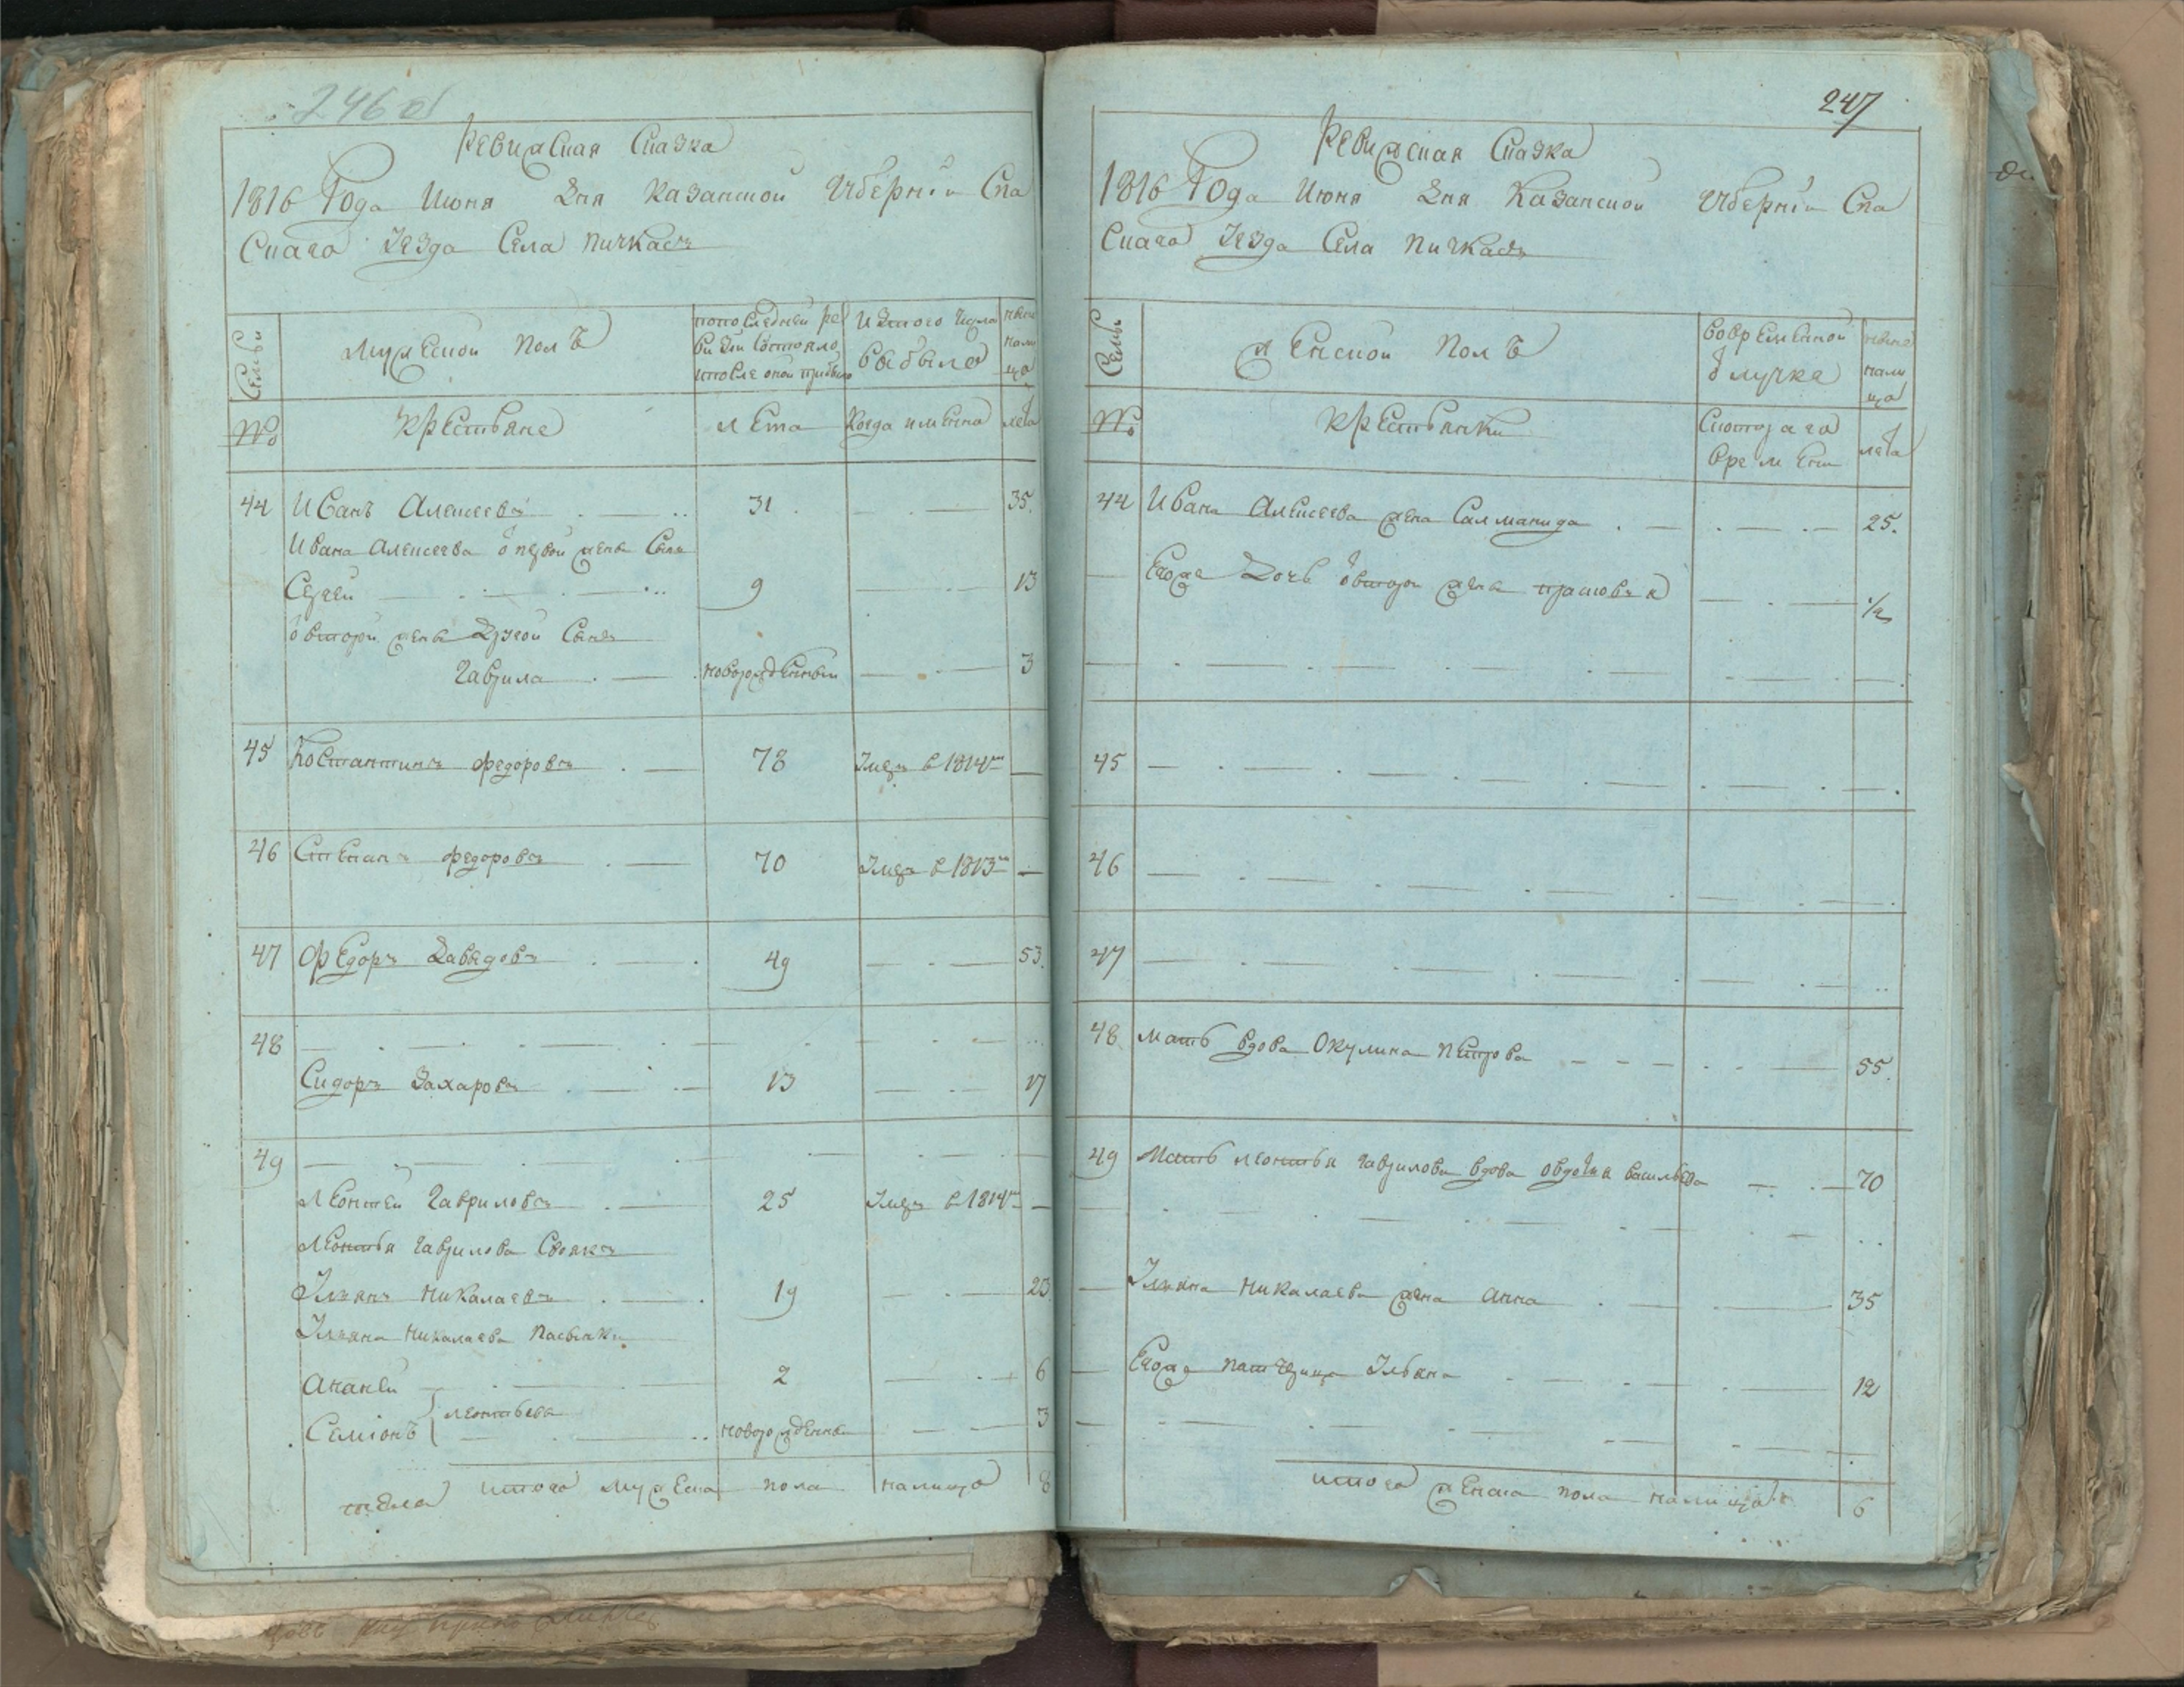 246 об
Ревиская Сказка
1816 Года Июня Дня Казанской Губернии Спа
Скаго Уезда Села Пичкасъ
Семьи
Мужеской полъ
по последней ре
визии состояло
и после оной прибыло
Из того числа
выбыло
ныне
нали
цо
№
Крестьяне
Лета
Когда имянно
лета
44 Иванъ Алексеевъ 31 35.
Ивана Алексеева о первой жены Сынъ
Сергей 9 13
о второй жены Другой Сынъ
Гаврила новорожденный 3
45 Костантинъ Федоровъ 78 Умеръ в 1814м
46 Степанъ Федоровъ 70 Умеръ в 1813м
47 Федоръ Давыдовъ 49 53.
48
Сидоръ Захаровъ 13 17
49
Леонтей Гавриловъ 25 Умеръ в 1814м
Леонтья Гаврилова Своякъ
Ульянъ Николаевъ 19 23
Ульяна Николаева Пасынки
Ананей 2 6
Семионъ леонтьевы новорожденны 3
итого Мужеска пола налицо 8
247
Ревиская Сказка
1816 Года Июня Дня Казанской Губернии Спа
Скаго Уезда Села Пичкасъ
Семьи
Женской Полъ
Во временной
отлучке
ныне
нали
цо
№
Крестьянки
Скотораго
времени
лета
44 Ивана Алексеева жена Саламанида 25.
Егоже Дочь о второй жены прасковья 1/2
45
46
47
48 Мать вдова Окулина Петрова 55.
49 Мать Леонтья Гаврилова вдова овдотья васильева 70
Ульяна Николаева жена Анна 35
Егоже патчерица Ульяна 12
итого женска пола налицо 6